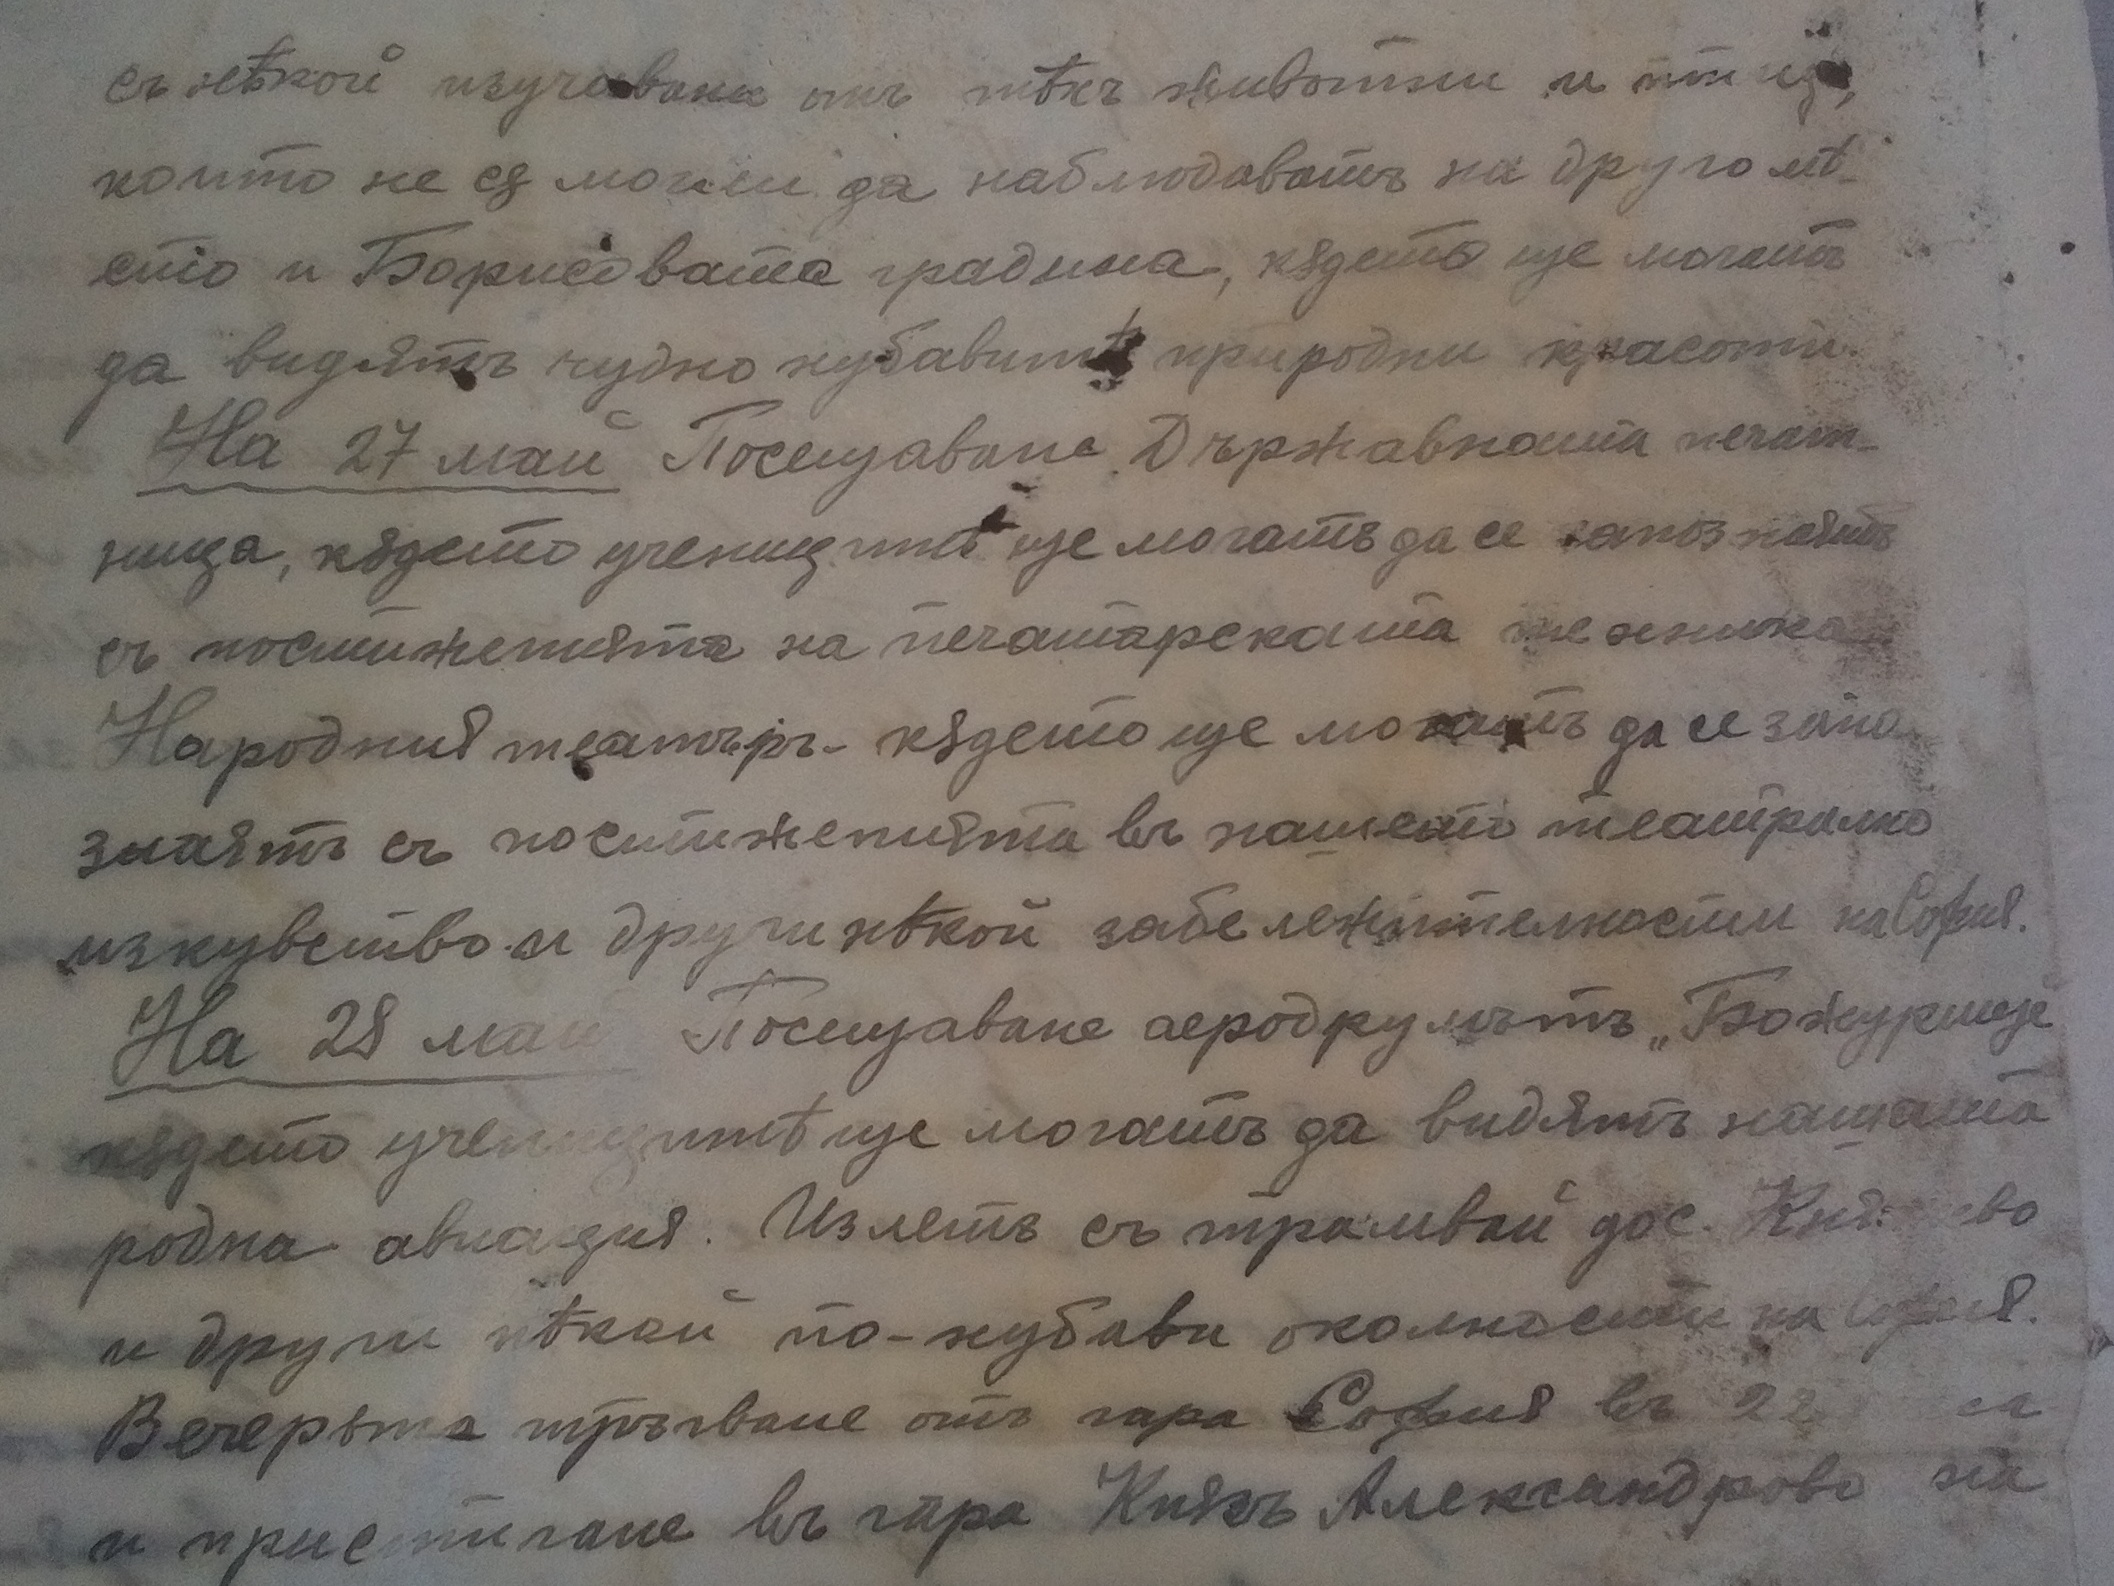 съ нѣкой изучавани отъ тѣхъ животни и птици,
които не сѫ могли да наблюдаватъ на друго мѣ-
сто и Борисовата градина, кѫдето ще могатъ
да видятъ чудно хубавитѣ природни красоти.
На 27 май Посещаване Държавната печат-
ница, кѫдето ученицитѣ ще могатъ да се запознаятъ
съ постиженията на печатарската техника
Народния театъръ - кѫдето ще могатъ да се запо
знаятъ съ постиженията въ нашето театрално
изкувство и други нѣкой забележителности на София.
На 28 май Посещаване аеродрумътъ „Божурище
кѫдето ученицитѣ ще могатъ да видятъ нашата
родна авиация. Излетъ съ трамвай до с. Княжево
и други нѣкой по-хубави околности на София.
Вечерьта тръгване отъ гара София въ 22
и пристигане въ гара Князъ Александрово на